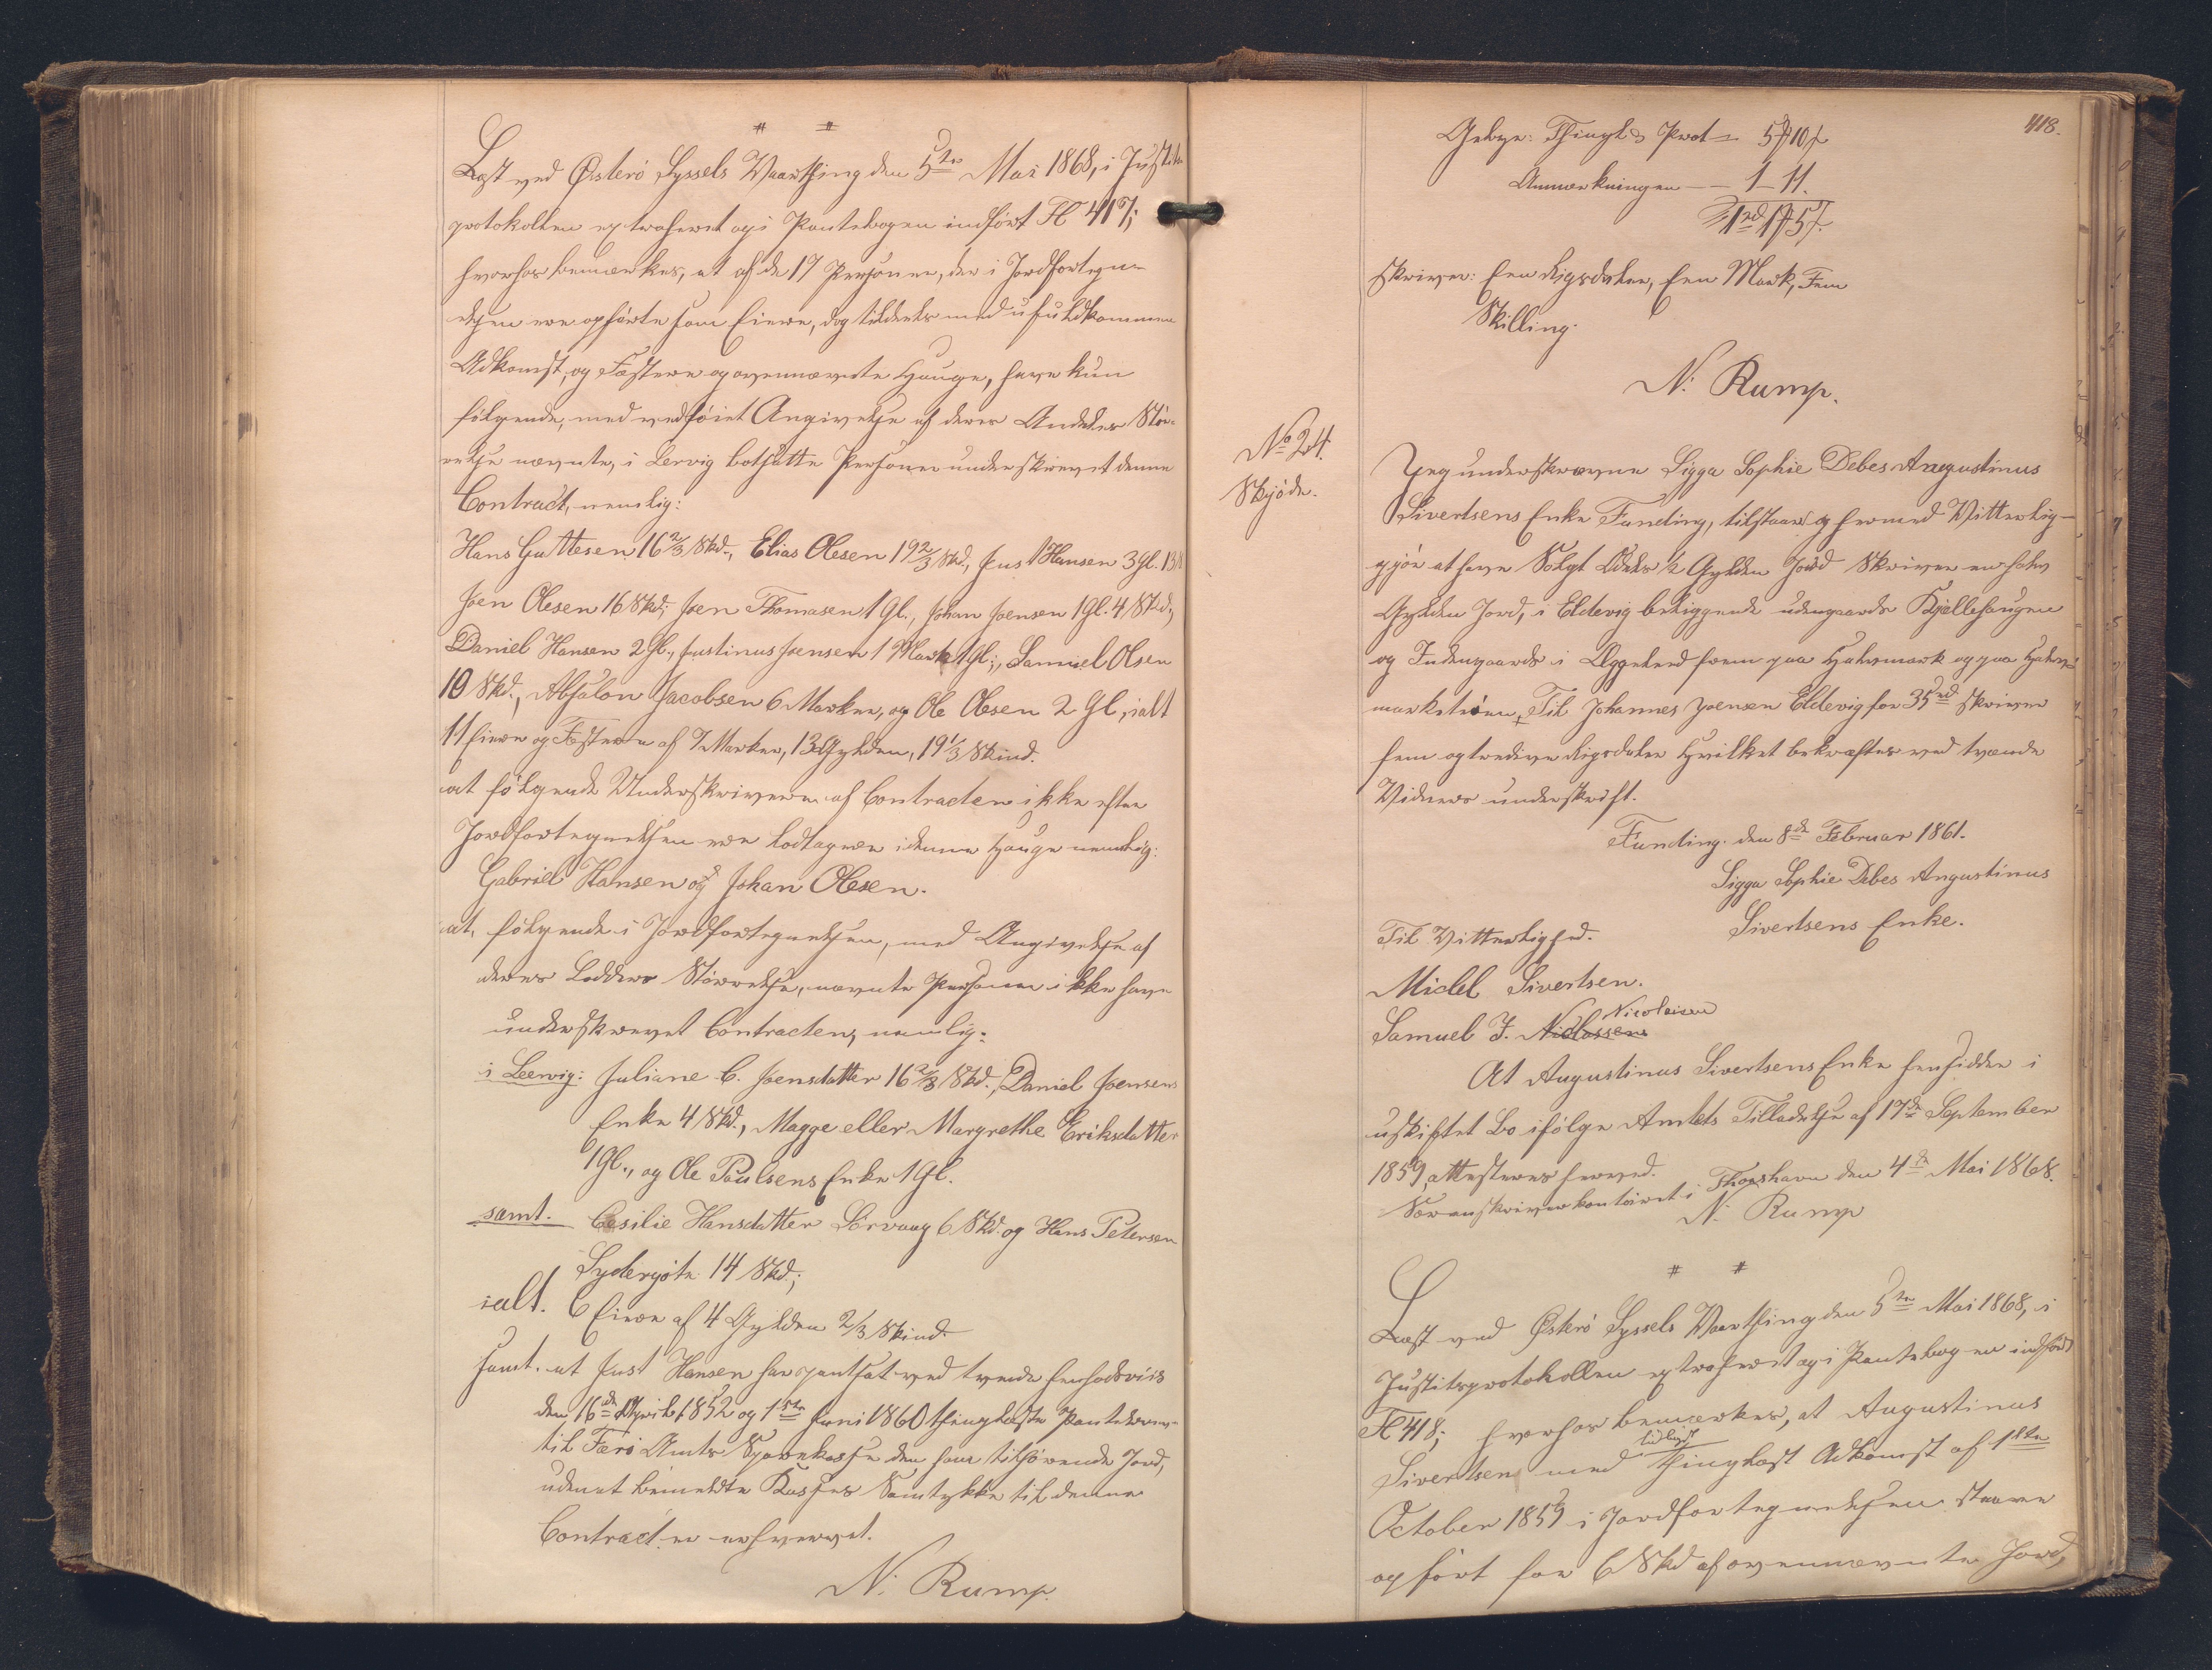 # #
Læst ved Østerø Syssels Vaarthing den 5te Mai 1868, i Justits
protokollen extraheret og i Pantebogen indført Fl 417;
hvorhos bemærkes, at af de 17 Personer, der i Jordfortegn-
elsen ere opførte som Eiere, dog tildeels med ufuldkommen
Adkomst, og Fæstere af ovennævnte Hauge, have kun
følgende, med vedføiet Angivelse af deres Andeles Stør-
relse nævnte, i Lervig bosatte Personer underskrevet denne
Contract, nemlig:
Hans Guttesen 16 2/3 Skd., Elias Olesen 19 2/3 Skd., Just Hansen 3 Gl. 13
Joen Olesen 16 Skd; Joen Thomasen 1 Gl., Johan Joensen 1 Gl. 4 Skd,
Daniel Hansen 2 Gl., Justinus Joensen 1 Mark 1 Gl;, Samuel Olsen
10 Skd., Absalon Jacobsen 6 Marker, og Ole Olesen 2 Gl, ialt
11 Eiere og Fæstere af 7 Marker, 13 Gylden, 19 1/3 Skind.
at følgende Underskrivere af Contracten ikke efter
Jordfortegnelsen ere lodtagere i denne Hauge nemlig:
Gabriel Hansen og Johan Olesen.
at, følgende i Jordfortegnelsen, med Angivelse af
deres Lodders Størrelse, nævnte Personer ikke have
underskrevet Contracten, nemlig:
i Lervig: Juliane C. Joensdatter 16 2/3 Skd., Daniel Joensens
Enke 4 Skd., Magge eller Margrethe Eriksdatter
1 Gl., og Ole Paulsens Enke 1 Gl.
samt. Cesilie Hansdatter Sørvaag 6 Skd. og Hans Petersen
Sydergøte 14 Skd.;
ialt. 6 Eiere af 4 Gylden 2/3 Skind.
samt. at Just Hansen har pantsat ved tvende henholdsviis
den 16de April 1852 og 1ste Juni 1860 thinglæste Panteb
til Færø Amts Sparekasse den ham tilhørende Jord,
uden at bemeldte Kasses Samtykke til denne
Contract er erhvervet.
N. Rump.
418.
Gebyr: Thingl. & Prot = 5 10
Anmærkningen — 1 — 11.
1 rd 1 5
skriver: Een Rigsdaler, Een Mark, Fem
Skilling.
N. Rump.
No 24.
Skjøde.
Jeg underskrevne Sigga Sophie Debes Augustinus
Sivertsens Enke Funding, tilstaar og hermed Vitterlig-
gjør at have Solgt Odels 1/2 Gylden Jord Skriver en halv
Gylden Jord, i Eldevig beliggende udengaards Kjellehaugen
og Indengaards i frem paa Halvmark og paa Halv
marksteien, Til Johannes Joensen Eldevig for 35 rd skriver
fem og tredive Rigsdaler Hvilket bekræftes ved tvende
Vidners underskrift.
Funding. den 8de Februar 1861.
Sigga Sophie Debes Augustinus
Sivertsens Enke.
Til Vitterlighed.
Michl Sivertsen.
Nicolaisen
Samuel J. Niclassens
At Augustinus Sivertsens Enke hensidder i
uskiftet Bo ifølge Amtets Tilladelse af 17de September
1859, attesteres herved.
Sorenskriverkontoiret i Thorshavn den 4de Mai 1868.
N. Rump
# #
Læst ved Østerø Syssels Vaarthing den 5te Mai 1868, i
Justitsprotokollen extraheret og i Pantebogen indført
Fl 418; hvorhos bemærkes, at Augustinus
tidligst
Sivertsen med thinglæst Adkomst af 1ste
October 1859 i Jordfortegnelsen staaer
opført for 6 Skd af ovennævnte Jord,